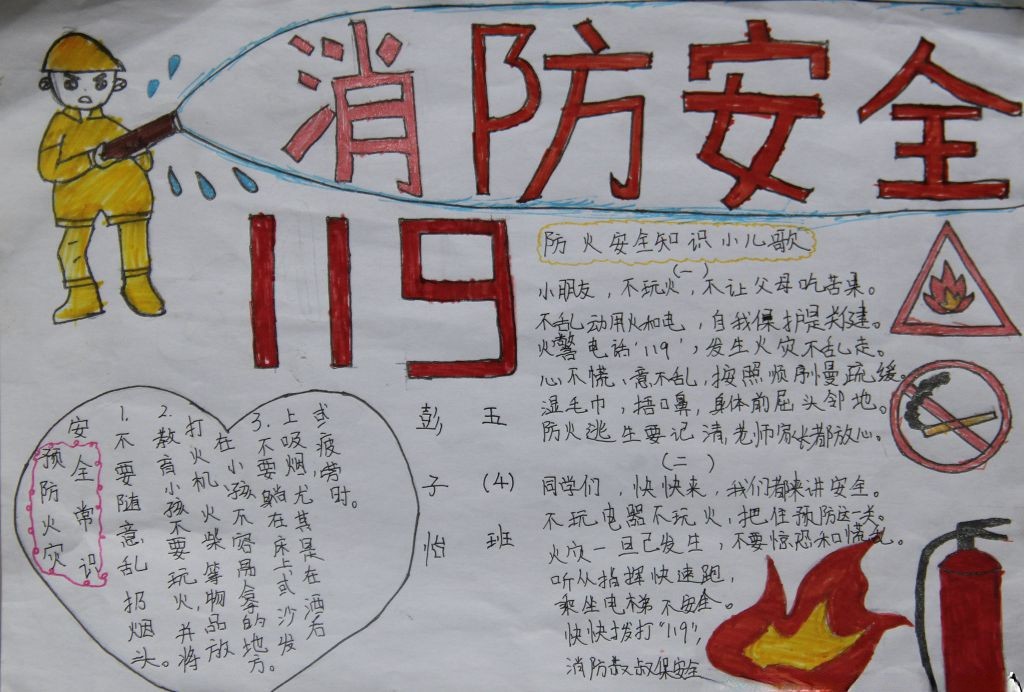 消防安全
119
防火安全知识小儿歌
(一)
小朋友，不玩火，不让父母吃苦果。
不乱动用火和电，自我保护是关建。
火警电话'119'，发生火灾不乱走。
心不慌，意不乱，按照顺序慢疏缓。
湿毛巾，捂口鼻，身体前屈头邻地。
防火逃生要记清，老师家长都放心。
(二)
同学们，快快来，我们都来讲安全。
不玩电器不玩火，把住预防这一关。
火灾一旦已发生，不要惊恐和慌乱。
听从指挥快速跑，
乘坐电梯不安全。
快快拨打"119"，
消防叔叔保安全
五(4)班
彭子怡
安全常识
预防火灾
1.不要随意乱扔烟头。
2.教育小孩不要玩火，并将
打火机、火柴等物品放
在小孩不容易拿的地方。
3.不要躺在床上或沙发
上吸烟，尤其是在酒后
或疲劳时。